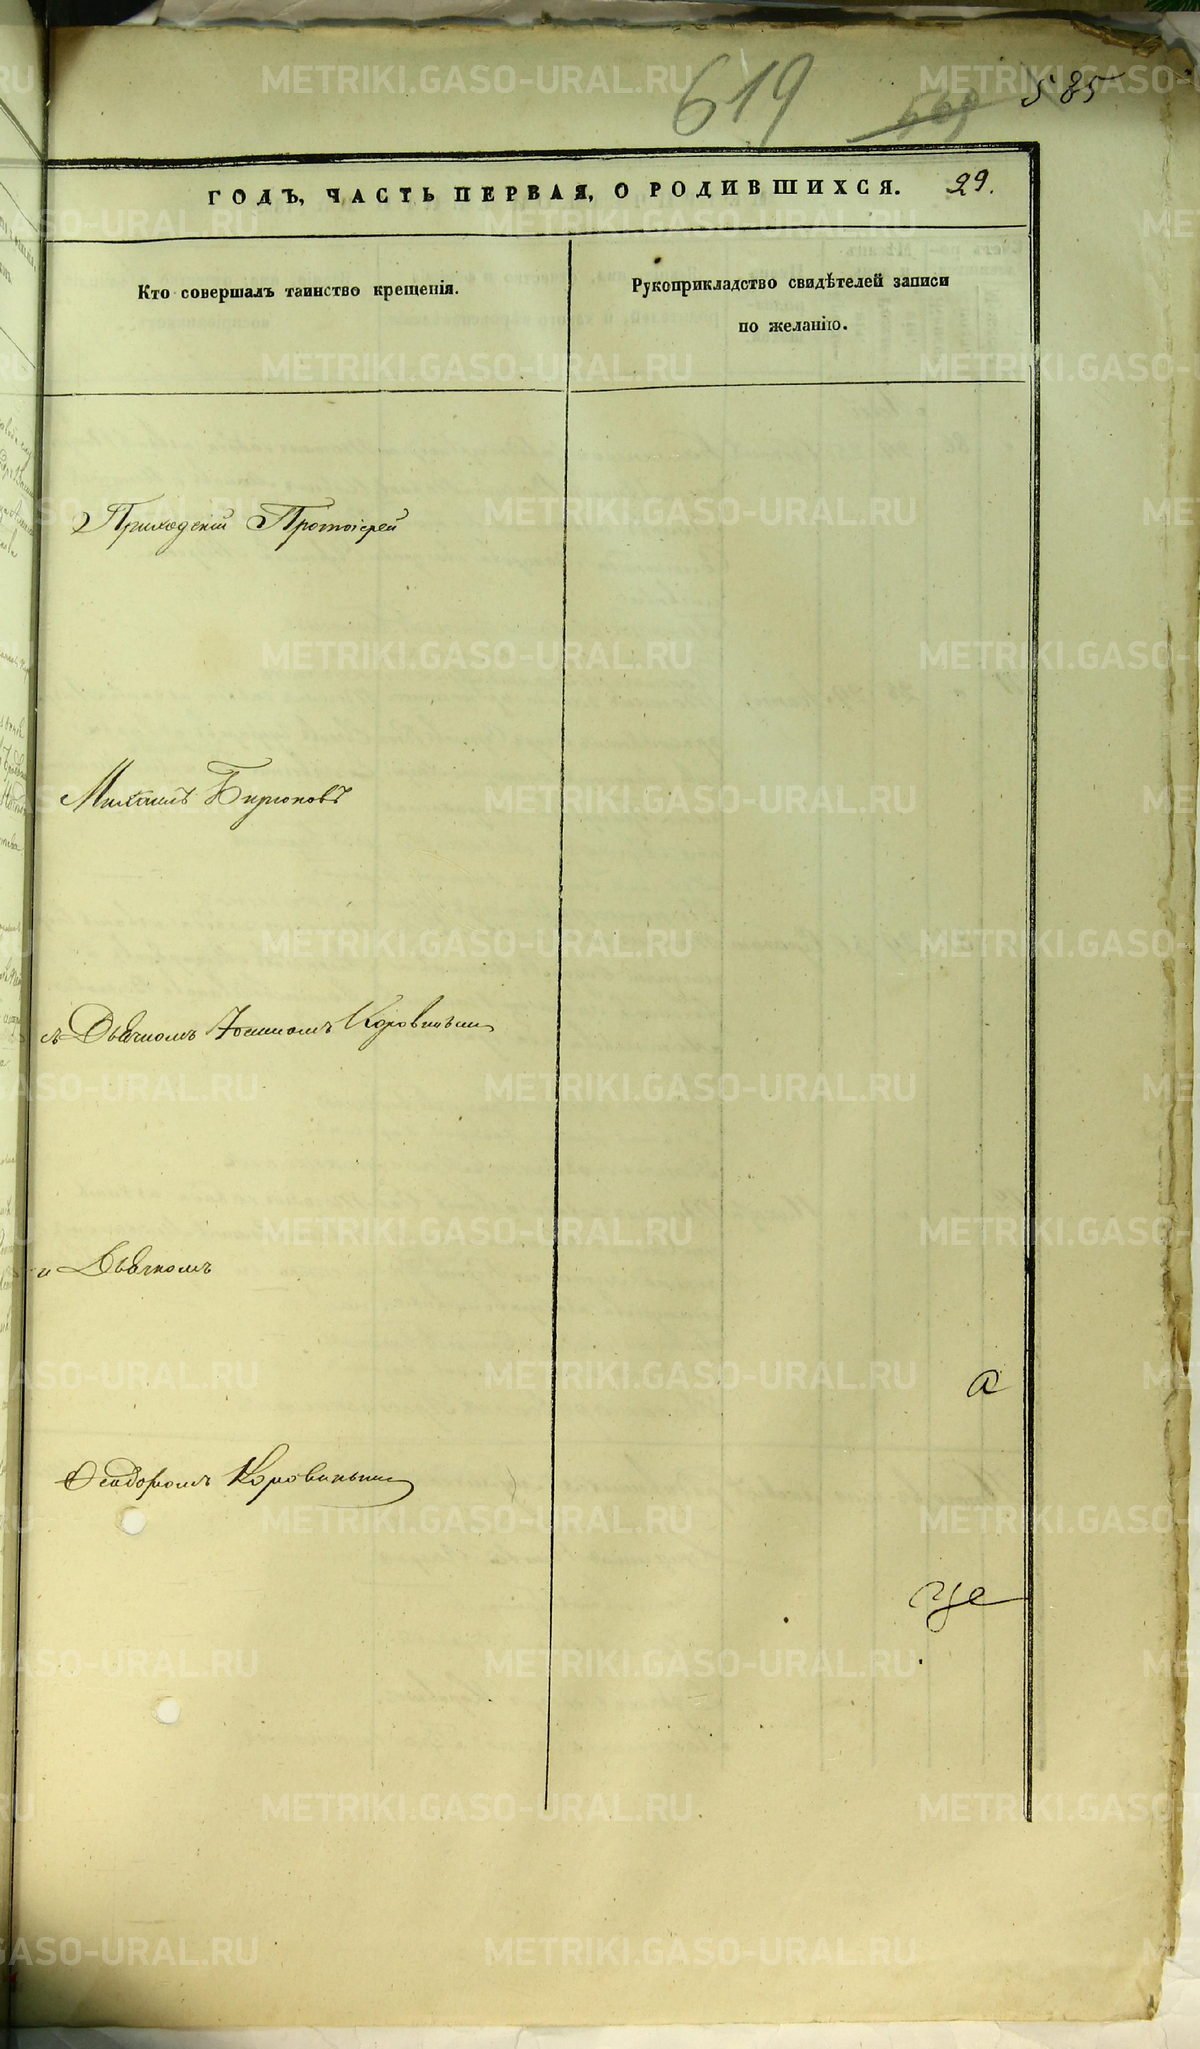 619
585
ГОДЪ, ЧАСТЬ ПЕРВАЯ, О РОДИВШИХСЯ. 29.
Кто совершалъ таинство крещенія.
Рукоприкладство свидѣтелей записи
по желанію.
Приходскій Протоіерей
Михаилъ Бирюковъ
съ Дьячкомъ Іоанномъ Коровинымъ
и Дьячкомъ
Ѳеодоромъ Коровинымъ
а
METRIKI.GASO-URAL.RU